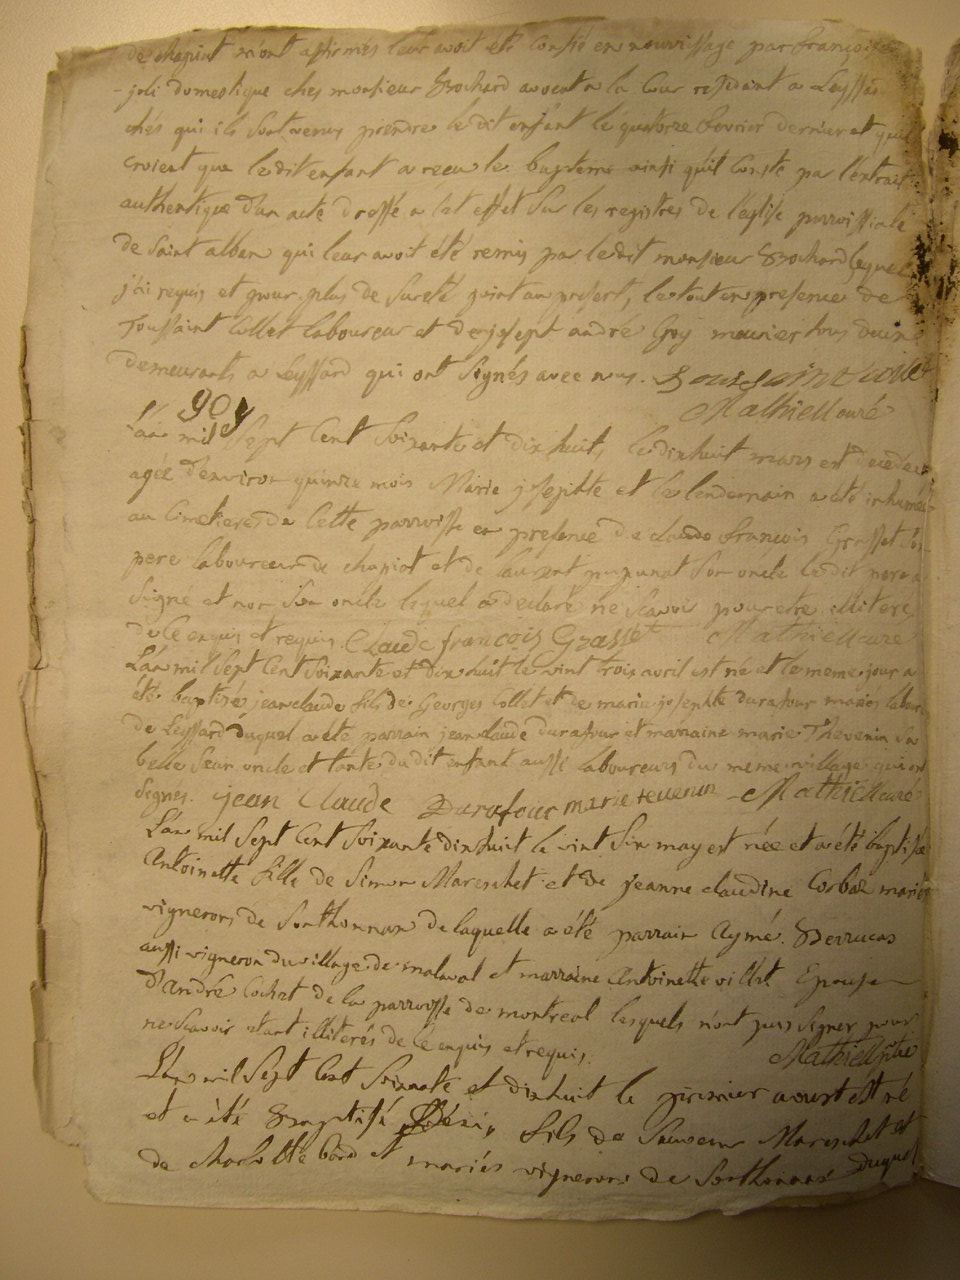 de chapiat m'ont affirmés leur avoit été confié en nourrissage par françois
joli domestique ches monsieur Brochard avocat a la Cour residant a Leyssard
chés qui ils sont venus prendre le dit enfant le quatorze fevrier dernier et qu'ils
croient que le dit enfant a recu le bapteme ainsi qu'il conste par l'extrait
authentique d'un acte dressé a cet effet sur les registres de l'eglise parroissiale
de Saint alban qui leur avoit été remis par le dit monsieur Brochard lequel
j'ai requis et pour plus de sureté joint au present, le tout en presence de
Toussaint Collet laboureur et de josept andré Goy meunier tous deux
demeurants a Leyssard qui ont signés avec nous. Toussaint Collet
goy Mathieu curé
L'an mil Sept Cent Soixante et dixhuit, le dixhuit mars est decedée
agée d'environ quinze mois Marie josephte et le lendemain a été inhumée
au Cimetiere de Cette parroisse en presence de claude françois Grasset son
pere laboureur de chapiat et de laurent pupunat son oncle le dit pere a
signé et non son oncle lequel a declaré ne scavoir pour etre illiteré
de ce enquis et requis Claude françois Grasset Mathieu curé
L'an mil Sept Cent Soixante et dix huit le vint trois avril est né et le meme jour a
été baptisé jean claude fils de Georges Collet et de marie josephte durafour mariés labour
de Leyssard duquel a été parrain jean claude durafour et marraine marie Thevenin sa
belle Seur oncle et tante du dit enfant aussi laboureurs du meme village qui ont
signés. jean Claude Durafour marie tevenin Mathieu curé
L'an mil Sept Cent Soixante dixhuit le vint Six may est née et a été baptisée
Antoinette fille de Simon Mareschet et de jeanne claudine Corbaz mariés
vignerons de Sonthonnax de laquelle a été parrain Aymé Berrucas
aussi vigneron du village de malaval et marraine Antoinette villet Epouse
D'André Cochet de la parroisse de montreal lesquels n'ont pas signer pour
ne Scavoir etant illiterés de ce enquis et requis. Mathieu ptre
L'an mil Sept Cent Soixante et dixhuit le premier aoust est né
et a été Baptisé fils de Sauveur Mareschet et
de charlotte mariés vignerons de Sonthonnax duquel